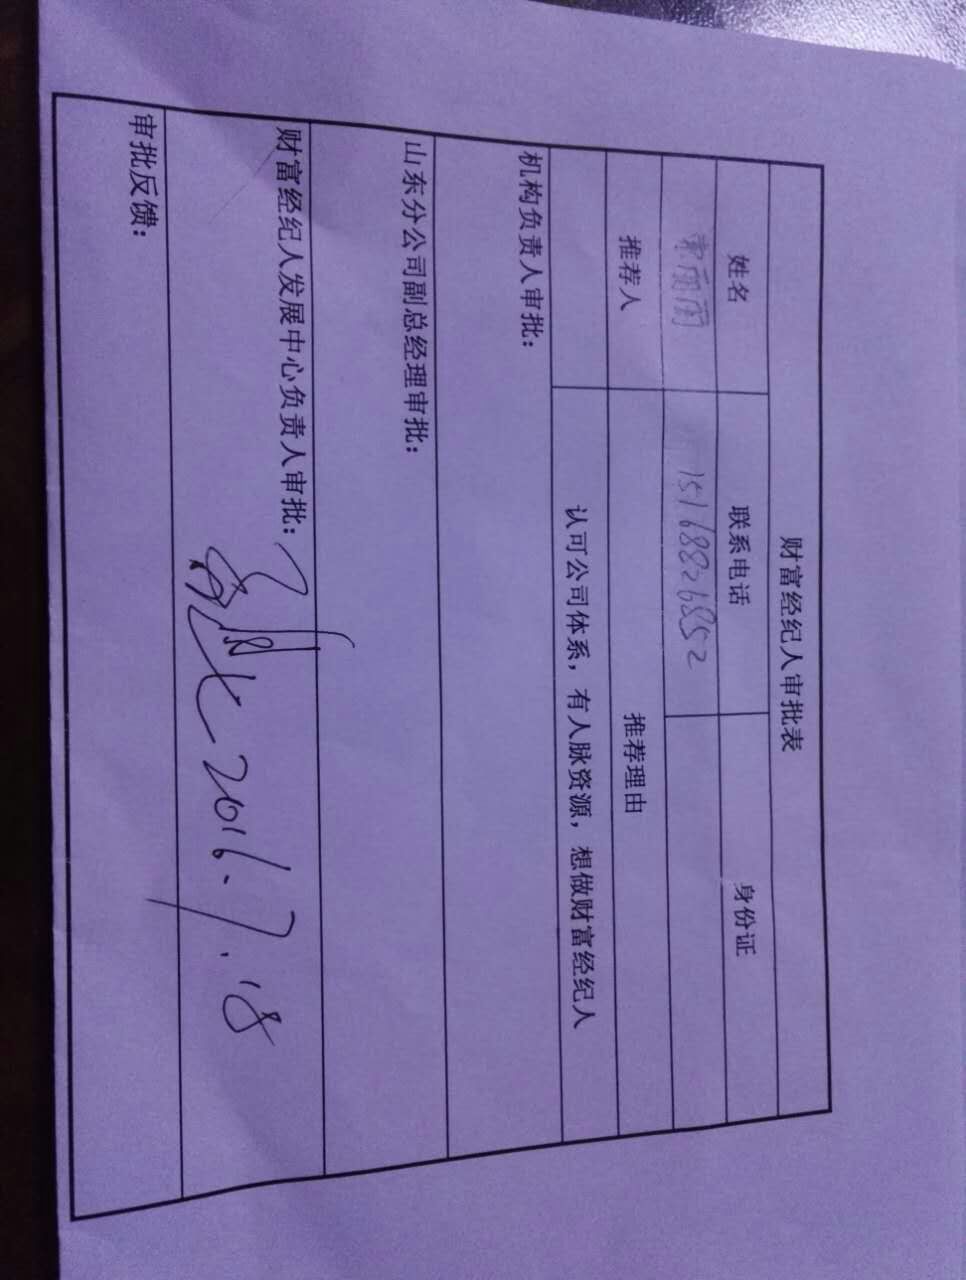 财富经纪人审批表
姓名 联系电话 身份证
15168826852
推荐人 推荐理由
认可公司体系，有人脉资源，想做财富经纪人
机构负责人审批：
山东分公司副总经理审批：
财富经纪人发展中心负责人审批：
2016.7.18
审批反馈：